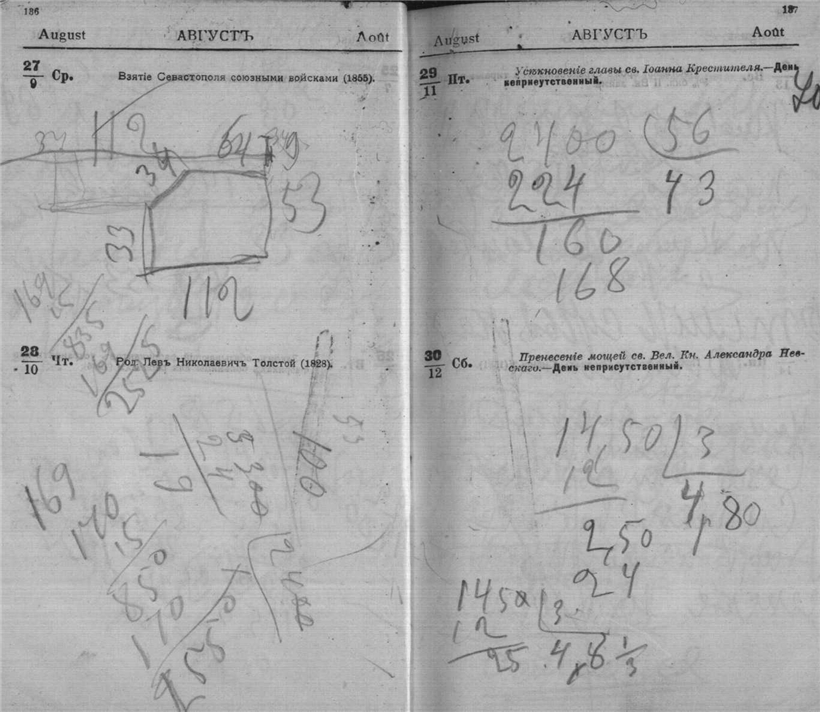 186
August АВГУСТЪ Août
27/9 Ср. Взятіе Севастополя союзными войсками (1855).
112
34 64 9
34
53
33
112
169
15
835
169
2525
28/10 Чт. Род Левъ Николаевичъ Толстой (1828).
53
100
5300 2400
24
19
169
170
150
850
170
187
August АВГУСТЪ Août
29/11 Пт. Усѣкновеніе главы св. Іоанна Крестителя.—День
неприсутственный.
2400 56
224 43
160
168
30/12 Сб. Пренесеніе мощей св. Вел. Кн. Александра Нев-
скаго.—День неприсутственный.
14,50 3
12 4,80
2,50
24
1450 3
12
25 4,8 1/3